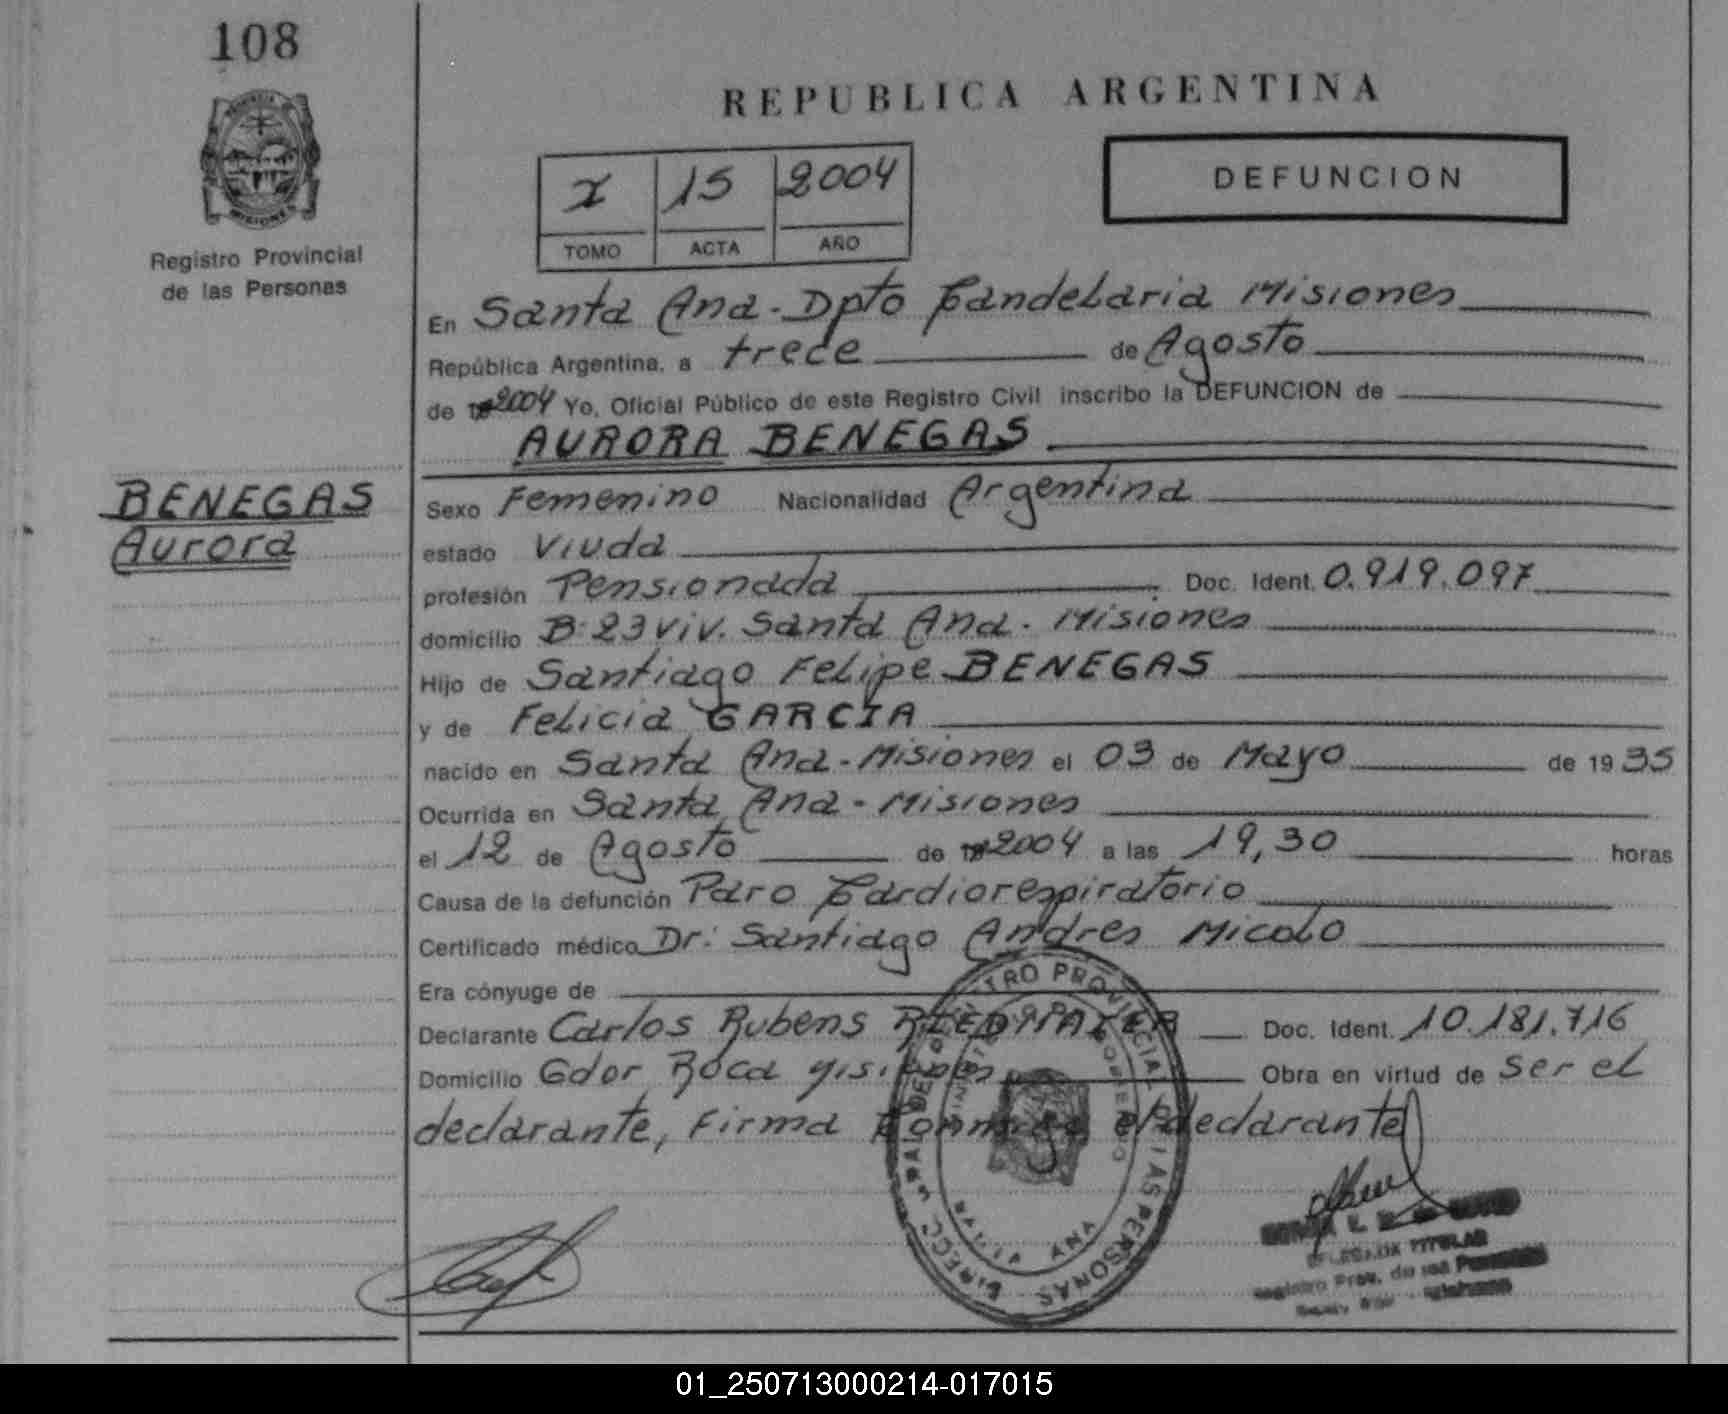 108
REPUBLICA ARGENTINA
MISIONES
Registro Provincial
de las Personas
I 15 2004
TOMO ACTA AÑO
DEFUNCION
En Santa Ana - Dpto Candelaria Misiones
República Argentina, a trece de Agosto
de 2004 Yo, Oficial Público de este Registro Civil inscribo la DEFUNCION de
AURORA BENEGAS
BENEGAS
Aurora
Sexo Femenino Nacionalidad Argentina
estado Viuda
profesión Pensionada Doc. Ident. 0.919.097
domicilio B: 23 viv. Santa Ana - Misiones
Hijo de Santiago Felipe BENEGAS
y de Felicia GARCIA
nacido en Santa Ana - Misiones el 03 de Mayo de 1935
Ocurrida en Santa Ana - Misiones
el 12 de Agosto de 2004 a las 19,30 horas
Causa de la defunción Paro Cardiorespiratorio
Certificado médico Dr: Santiago Andres Micolo
Era cónyuge de
Declarante Carlos Rubens RIEDMAYER Doc. Ident. 10.181.716
Domicilio Gdor Roca Misiones Obra en virtud de ser el
declarante, Firma Conmigo el declarante
PROVINCIAL
PERSONAS
ANA
TITULAR
Registro Prov. de las
01_250713000214-017015